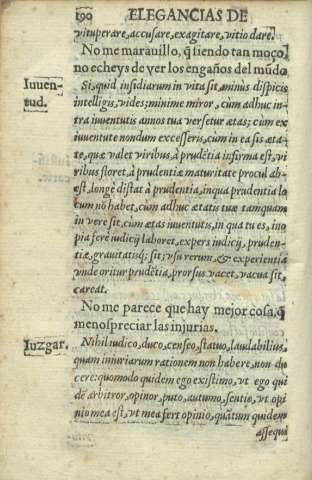 190 ELEGANCIAS DE
vituperare, accusare, exagitare, vitio dare.
No me marauillo, q̃ siendo tan moço
no echeys de ver los engaños del mũdo
Iuuen-
tud.
Si, quid insidiarum in vita sit, minus dispicis
intelligis, vides; minime miror, cùm adhuc in-
tra iuuentutis annos tua versetur ætas; cùm ex
iuuentute nondum excesseris, cùm in ea sis æta-
te, quæ valet viribus, à prudẽtia infirma est, vi
ribus floret, à prudentiæ maturitate procul ab-
est, longè distat à prudentia, in qua prudentia lo
cum nõ habet, cùm adhuc ætatis tuæ tamquam
in vere sit, cùm ætas iuuentutis, in qua tu es, ino
pia ferè iudicij laboret, expers iudicij, pruden-
tiæ, grauitatisq; sit; vsu rerum, & experientia
vnde oritur prudẽtia, prorsus vacet, vacua sit,
careat.
No me parece que hay mejor cosa, q̃
menospreciar las injurias.
Iuzgar.
Nihil iudico, duco, censeo, statuo, laudabilius,
quam iniuriarum rationem non habere, non du
cere: quomodo quidem ego existimo, vt ego qui
dẽ arbitror, opinor, puto, autumo, sentio, vt opi
nio mea est, vt mea fert opinio, quãtum quidem
assequi